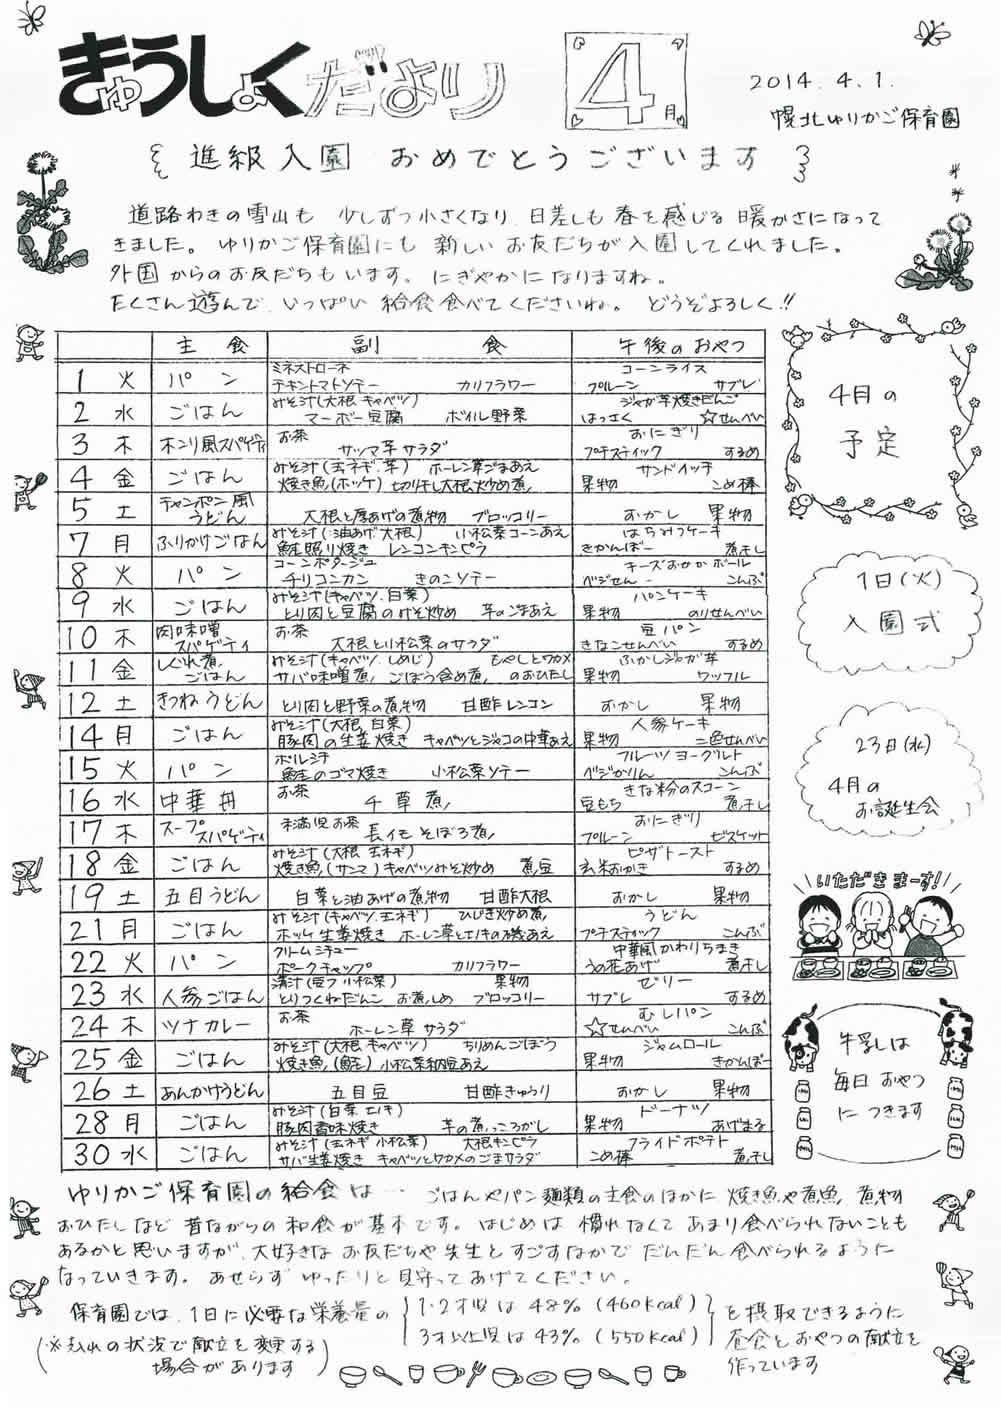 きゅうしょくだより 4月
2014.4.1.
幌北ゆりかご保育園
進級入園 おめでとうございます
道路わきの雪山も 少しずつ小さくなり、日差しも 春を感じる 暖かさになって
きました。 ゆりかご保育園にも 新しい お友だちが 入園してくれました。
外国からのお友だちもいます。 にぎやかに なりますね。
たくさん遊んで、いっぱい 給食食べてくださいね。 どうぞよろしく!!
主食 副食 午後のおやつ
1 火 パン ミネストローネ チキントマトソテー カリフラワー コーンライス プルーン サブレ
2 水 ごはん みそ汁(大根 キャベツ) マーボー豆腐 ボイル野菜 ジャガ芋焼きだんご はっさく ☆せんべい
3 木 ナポリ風スパゲティ お茶 サツマ芋サラダ おにぎり プチスティック するめ
4 金 ごはん みそ汁(玉ネギ、芋) ホーレン草ごまあえ 焼き魚(ホッケ) 切り干し大根炒め煮 サンドイッチ 果物 こめ棒
5 土 チャンポン風うどん 大根と厚あげの煮物 ブロッコリー おかし 果物
7 月 ふりかけごはん みそ汁(油あげ 大根) 小松菜コーンあえ 鮭照り焼き レンコンキンピラ はちみつケーキ きかんぼー 煮干し
8 火 パン コーンポタージュ チリコンカン きのこソテー チーズおかかボール ベジせんー こんぶ
9 水 ごはん みそ汁(キャベツ、白菜) とり肉と豆腐のみそ炒め 芋のごまあえ パンケーキ 果物 のりせんべい
10 木 肉味噌スパゲティ お茶 大根と小松菜のサラダ 豆パン きなこせんべい するめ
11 金 しぐれ煮ごはん みそ汁(キャベツ、しめじ) もやしとワカメのおひたし サバ味噌煮 ごぼう含め煮 ふかしジャガ芋 果物 ワッフル
12 土 きつねうどん とり肉と野菜の煮物 甘酢レンコン おかし 果物
14 月 ごはん みそ汁(大根、白菜) 豚肉の生姜焼き キャベツとジャコの中華あえ 人参ケーキ 果物 二色せんべい
15 火 パン ボルシチ 鮭のゴマ焼き 小松菜ソテー フルーツヨーグルト ベジかりん こんぶ
16 水 中華丼 お茶 千草煮 きな粉のスコーン 豆もち 煮干し
17 木 スープスパゲティ 未満児お茶 長イモそぼろ煮 おにぎり プルーン ビスケット
18 金 ごはん みそ汁(大根 玉ネギ) 焼き魚(サンマ) キャベツみそ炒め 煮豆 ピザトースト 玄米おかき するめ
19 土 五目うどん 白菜と油あげの煮物 甘酢大根 おかし 果物
21 月 ごはん みそ汁(キャベツ、玉ネギ) ひじき炒め煮 ホッケ生姜焼き ホーレン草とエノキの磯あえ うどん プチスティック こんぶ
22 火 パン クリームシチュー ポークチャップ カリフラワー 中華風かわりちまき うの花あげ 煮干し
23 水 人参ごはん 清汁(豆フ 小松菜) 果物 とりつくわだんご お煮しめ ブロッコリー ゼリー サブレ するめ
24 木 ツナカレー お茶 ホーレン草サラダ むしパン ☆せんべい こんぶ
25 金 ごはん みそ汁(大根 キャベツ) ちりめんごぼう 焼き魚(鮭) 小松菜納豆あえ ジャムロール 果物 きかんぼー
26 土 あんかけうどん 五目豆 甘酢きゅうり おかし 果物
28 月 ごはん みそ汁(白菜 エノキ) 豚肉香味焼き 芋の煮っころがし ドーナツ 果物 あげまる
30 水 ごはん みそ汁(玉ネギ 小松菜) 大根キンピラ サバ生姜焼き キャベツとワカメのごまサラダ フライドポテト こめ棒 煮干し
4月の
予定
1日(火)
入園式
23日(水)
4月の
お誕生会
いただきまーす!
牛乳は
毎日おやつ
につきます
ゆりかご保育園の給食は… ごはんやパン麺類の主食のほかに 焼き魚や煮魚、煮物
おひたしなど 昔ながらの和食が基本です。はじめは 慣れなくて あまり食べられないことも
あるかと思いますが、大好きな お友だちや先生と すごすなかで だんだん 食べられるように
なっていきます。 あせらず ゆったりと見守ってあげてください。
保育園では、1日に必要な栄養量の
1・2才児は 48% (460kcal)
3才以上児は 43% (550kcal)
を摂取できるように
昼食とおやつの献立を
作っています
(※それの状況で献立を変更する
場合があります)